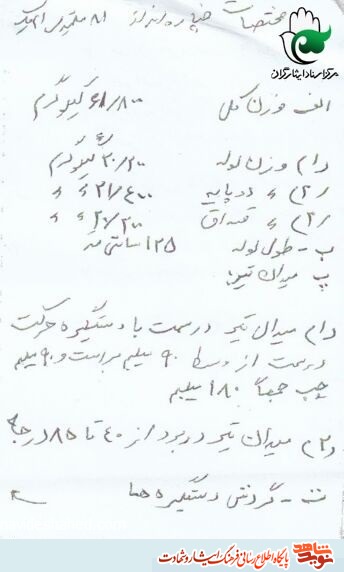 مختصات خمپاره انداز ۸۱ میلیمتری
مرکز اسناد ایثارگران
الف وزن کل ۶۱/۸۰۰ کیلوگرم
(۱) وزن لوله ۲۰/۲۰۰ کیلوگرم
(۲) 〃 دوپایه ۲۱/۴۰۰ 〃 〃
(۳) 〃 قنداق ۲۰/۲۰۰ 〃 〃
ب - طول لوله ۱۲۵ سانتی متر
پ میدان تیر:
(۱) میدان تیر در سمت با دستگیره حرکت
در سمت از وسط ۹۰ میلیم براست و ۹۰ میلیم
چپ جمعاً ۱۸۰ میلیم
(۲) میدان تیر در برد از ۴۰ تا ۸۵ درجه
ت - گردش دستگیره ها
نوید شاهد
پایگاه اطلاع رسانی فرهنگ ایثار و شهادت